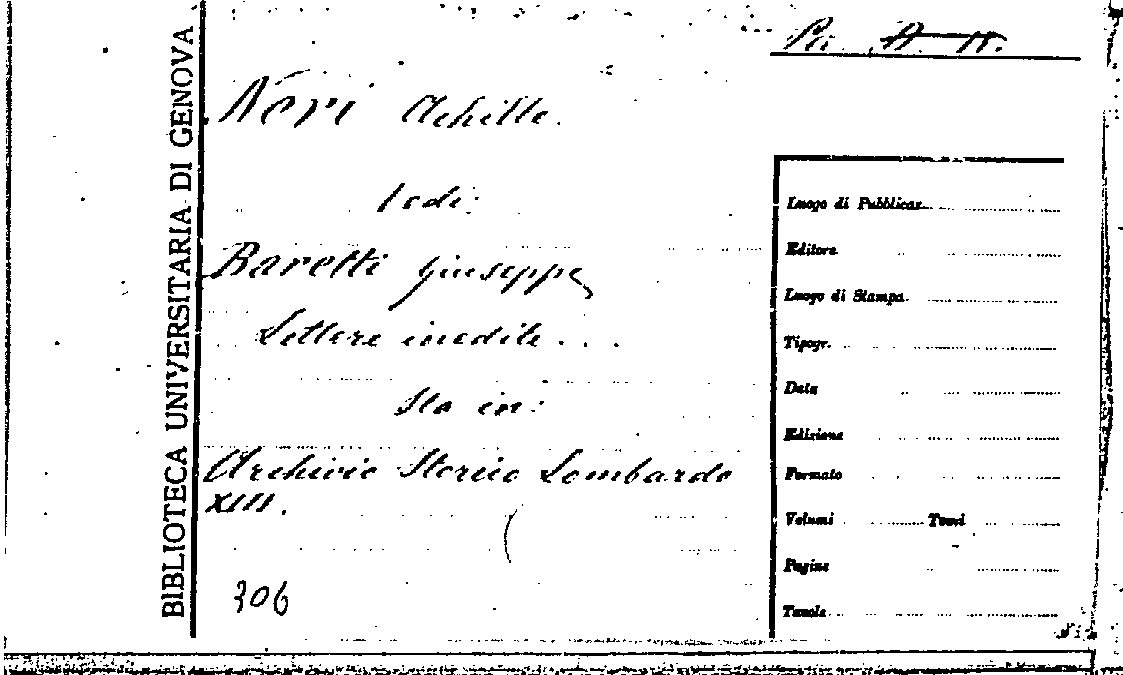 BIBLIOTECA UNIVERSITARIA DI GENOVA
Neri Achille.
Vedi:
Baretti Giuseppe
Lettere inedite...
Sta in:
Archivio Storico Lombardo
XIII.
306
Luogo di Pubblicaz.
Editore
Luogo di Stampa
Tipogr.
Data
Edizione
Formato
Volumi Tomi
Pagine
Tavole